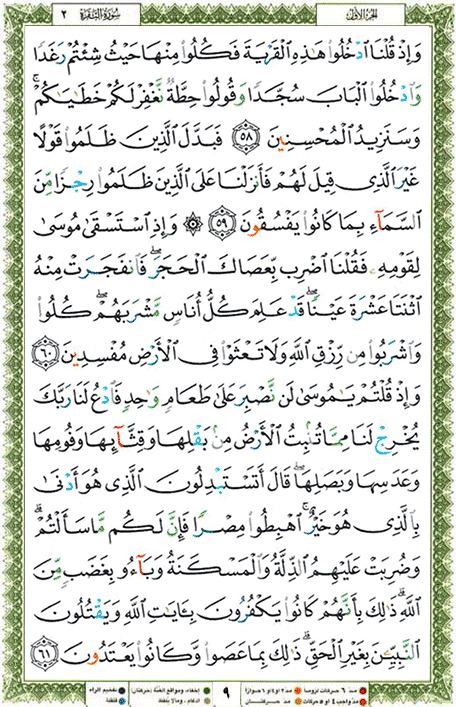 الجزء الأول سورة البقرة ٢
وَإِذْ قُلْنَا ٱدْخُلُوا۟ هَٰذِهِ ٱلْقَرْيَةَ فَكُلُوا۟ مِنْهَا حَيْثُ شِئْتُمْ رَغَدًا
وَٱدْخُلُوا۟ ٱلْبَابَ سُجَّدًا وَقُولُوا۟ حِطَّةٌ نَّغْفِرْ لَكُمْ خَطَٰيَٰكُمْ ۚ
وَسَنَزِيدُ ٱلْمُحْسِنِينَ ٥٨ فَبَدَّلَ ٱلَّذِينَ ظَلَمُوا۟ قَوْلًا
غَيْرَ ٱلَّذِى قِيلَ لَهُمْ فَأَنزَلْنَا عَلَى ٱلَّذِينَ ظَلَمُوا۟ رِجْزًا مِّنَ
ٱلسَّمَآءِ بِمَا كَانُوا۟ يَفْسُقُونَ ٥٩ ۞ وَإِذِ ٱسْتَسْقَىٰ مُوسَىٰ
لِقَوْمِهِۦ فَقُلْنَا ٱضْرِب بِّعَصَاكَ ٱلْحَجَرَ ۖ فَٱنفَجَرَتْ مِنْهُ
ٱثْنَتَا عَشْرَةَ عَيْنًا ۖ قَدْ عَلِمَ كُلُّ أُنَاسٍ مَّشْرَبَهُمْ ۖ كُلُوا۟
وَٱشْرَبُوا۟ مِن رِّزْقِ ٱللَّهِ وَلَا تَعْثَوْا۟ فِى ٱلْأَرْضِ مُفْسِدِينَ ٦٠
وَإِذْ قُلْتُمْ يَٰمُوسَىٰ لَن نَّصْبِرَ عَلَىٰ طَعَامٍ وَٰحِدٍ فَٱدْعُ لَنَا رَبَّكَ
يُخْرِجْ لَنَا مِمَّا تُنۢبِتُ ٱلْأَرْضُ مِنۢ بَقْلِهَا وَقِثَّآئِهَا وَفُومِهَا
وَعَدَسِهَا وَبَصَلِهَا ۖ قَالَ أَتَسْتَبْدِلُونَ ٱلَّذِى هُوَ أَدْنَىٰ
بِٱلَّذِى هُوَ خَيْرٌ ۚ ٱهْبِطُوا۟ مِصْرًا فَإِنَّ لَكُم مَّا سَأَلْتُمْ ۗ
وَضُرِبَتْ عَلَيْهِمُ ٱلذِّلَّةُ وَٱلْمَسْكَنَةُ وَبَآءُو بِغَضَبٍ مِّنَ
ٱللَّهِ ۗ ذَٰلِكَ بِأَنَّهُمْ كَانُوا۟ يَكْفُرُونَ بِـَٔايَٰتِ ٱللَّهِ وَيَقْتُلُونَ
ٱلنَّبِيِّـۧنَ بِغَيْرِ ٱلْحَقِّ ۗ ذَٰلِكَ بِمَا عَصَوا۟ وَّكَانُوا۟ يَعْتَدُونَ ٦١
مد ٦ حركات لزوماً مد ٢ أو ٤ أو ٦ جوازاً ٩ إخفاء، ومواقع الغنة (حركتان) تفخيم الراء
مد واجب ٤ أو ٥ حركات مد حركتان إدغام، وما لا يلفظ قلقلة